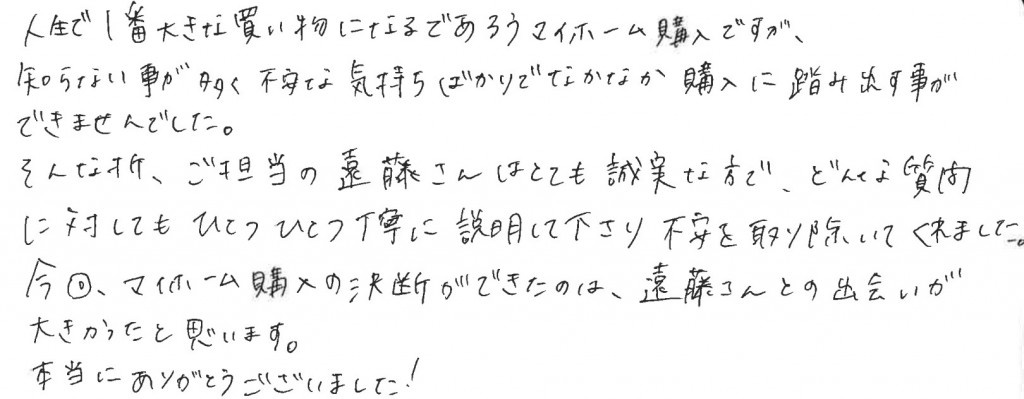 人生で1番大きな買い物になるであろうマイホーム購入ですが、
知らない事が多く不安な気持ちばかりでなかなか購入に踏み出す事が
できませんでした。
そんな折、ご担当の遠藤さんはとても誠実な方で、どんな質問
に対してもひとつひとつ丁寧に説明して下さり不安を取り除いてくれました。
今回、マイホーム購入の決断ができたのは、遠藤さんとの出会いが
大きかったと思います。
本当にありがとうございました!